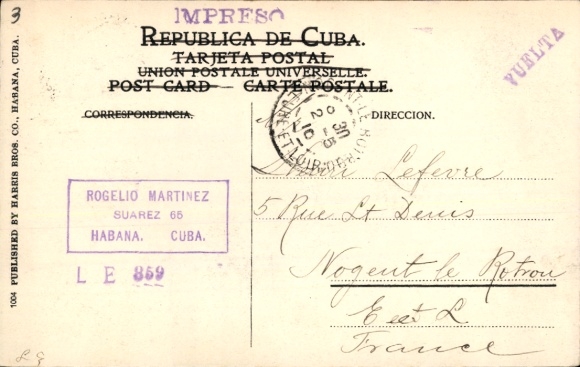 3
IMPRESO
REPUBLICA DE CUBA.
TARJETA POSTAL
UNION POSTALE UNIVERSELLE.
POST CARD — CARTE POSTALE.
VUELTA
CORRESPONDENCIA.
DIRECCION.
1004 PUBLISHED BY HARRIS BROS. CO., HABANA, CUBA.
ROGELIO MARTINEZ
SUAREZ 65
HABANA. CUBA.
L E 859
NOGENT-LE-ROTROU
EURE-ET-LOIR
Lefevre
5 Rue St Denis
Nogent le Rotrou
E et L
France